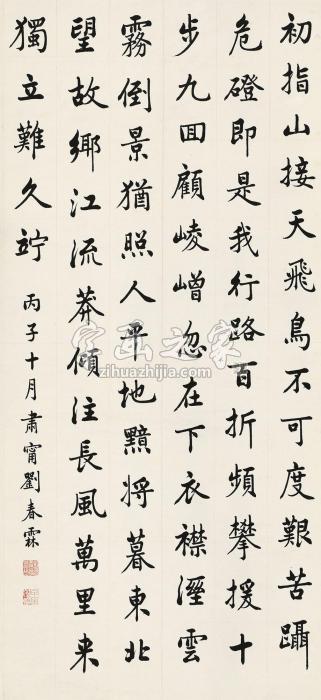 初指山接天飛鳥不可度艱苦躡
危磴即是我行路百折頻攀援十
步九回顧崚嶒忽在下衣襟溼雲
霧倒景猶照人平地黯將暮東北
望故鄉江流莽傾注長風萬里来
獨立難久竚
丙子十月肅甯劉春霖
字画之家
zihuazhijia.com